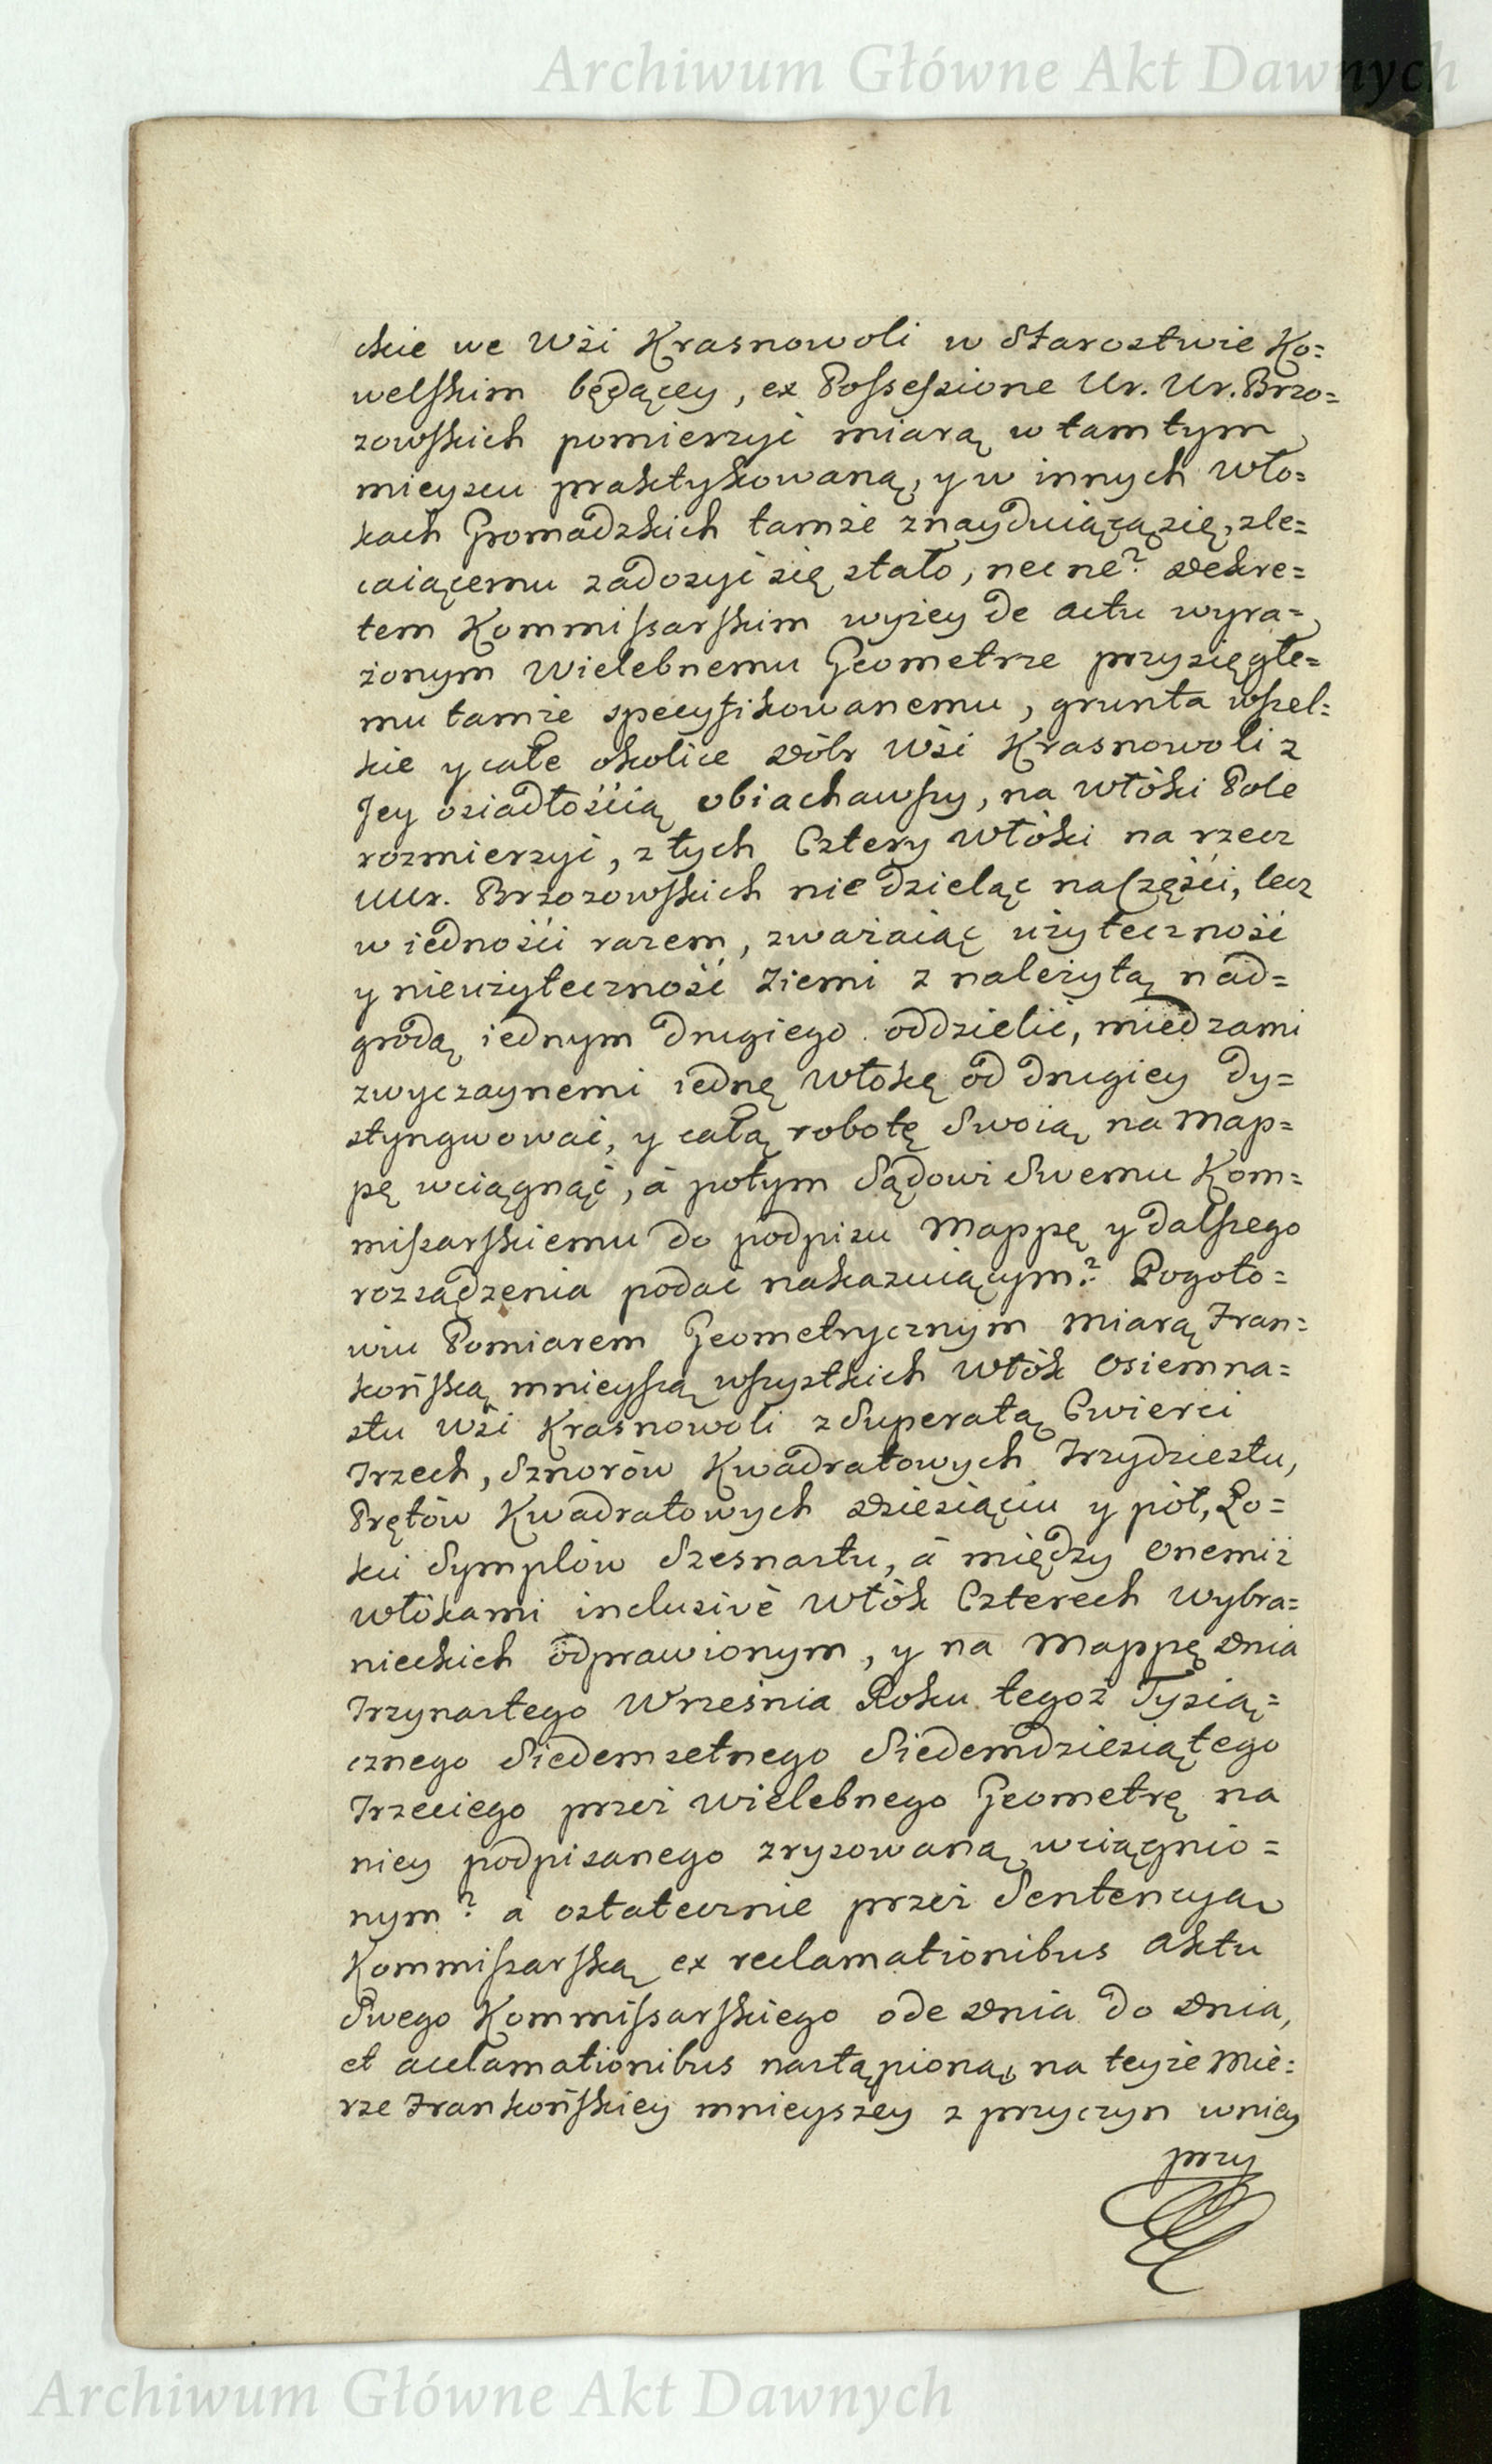 Archiwum Główne Akt Dawnych
ckie we Wśi Krasnowoli w Starostwie Ko=
welskim będącey, ex Possessione Ur. Ur. Brzo=
zowskich pomierzyć miarą w tamtym
mieyscu praktykowaną, y w innych Wło=
kach Gromadzkich tamże znayduiącą się, zle=
caiącemu zadosyć się stało, nec ne? Dekre=
tem Kommissarskim wyżey de actu wyra=
żonym Wielebnemu Geometrze przysięgłe=
mu tamże specyfikowanemu, grunta wszel=
kie y całe okolice Dóbr Wśi Krasnowoli z
Jey osiadłośćią obiachawszy, na Włóki Pole
rozmierzyć, z tych Cztery Włóki na rzecz
UUr. Brzozowskich nie dzieląc na Częśći, lecz
w iednośći razem, zważaiąc użyteczność
y nieużyteczność Ziemi z należytą nad=
grodą iednym drugiego oddzielić, miedzami
zwyczaynemi iednę Włokę od drugiey dy=
styngwować, y całą robotę Swoią na Map=
pę wciągnąć, á potym Sądowi Swemu Kom=
missarskiemu do podpisu Mappę y dalszego
rozsądzenia podać nakazuiącym? Pogoto=
wiu Pomiarem Geometrycznym Miarą Fran=
końską mnieyszą wszystkich Włók Osiemna=
stu Wśi Krasnowoli z Superatą Cwierci
Trzech, Sznorów Kwadratowych Trzydziestu,
Prętów Kwadratowych Dziesiąciu y pół, Ło=
kci Symplów Szesnastu, á między Onemiż
Włókami inclusivè Włók Czterech Wybra=
nieckich odprawionym, y na Mappę Dnia
Trzynastego Września Roku tegoż Tysią=
cznego Siedemsetnego Siedemdziesiątego
Trzeciego przez Wielebnego Geometrę na
niey podpisanego zrysowaną wciągnio=
nym? á ostatecznie przez Sentencyą
Kommissarską ex reclamationibus Aktu
Swego Kommissarskiego ode Dnia do Dnia,
et acclamationibus nastąpioną, na teyże Mie=
rze Frankońskiey mnieyszey z przyczyn w niey
przy
Archiwum Główne Akt Dawnych